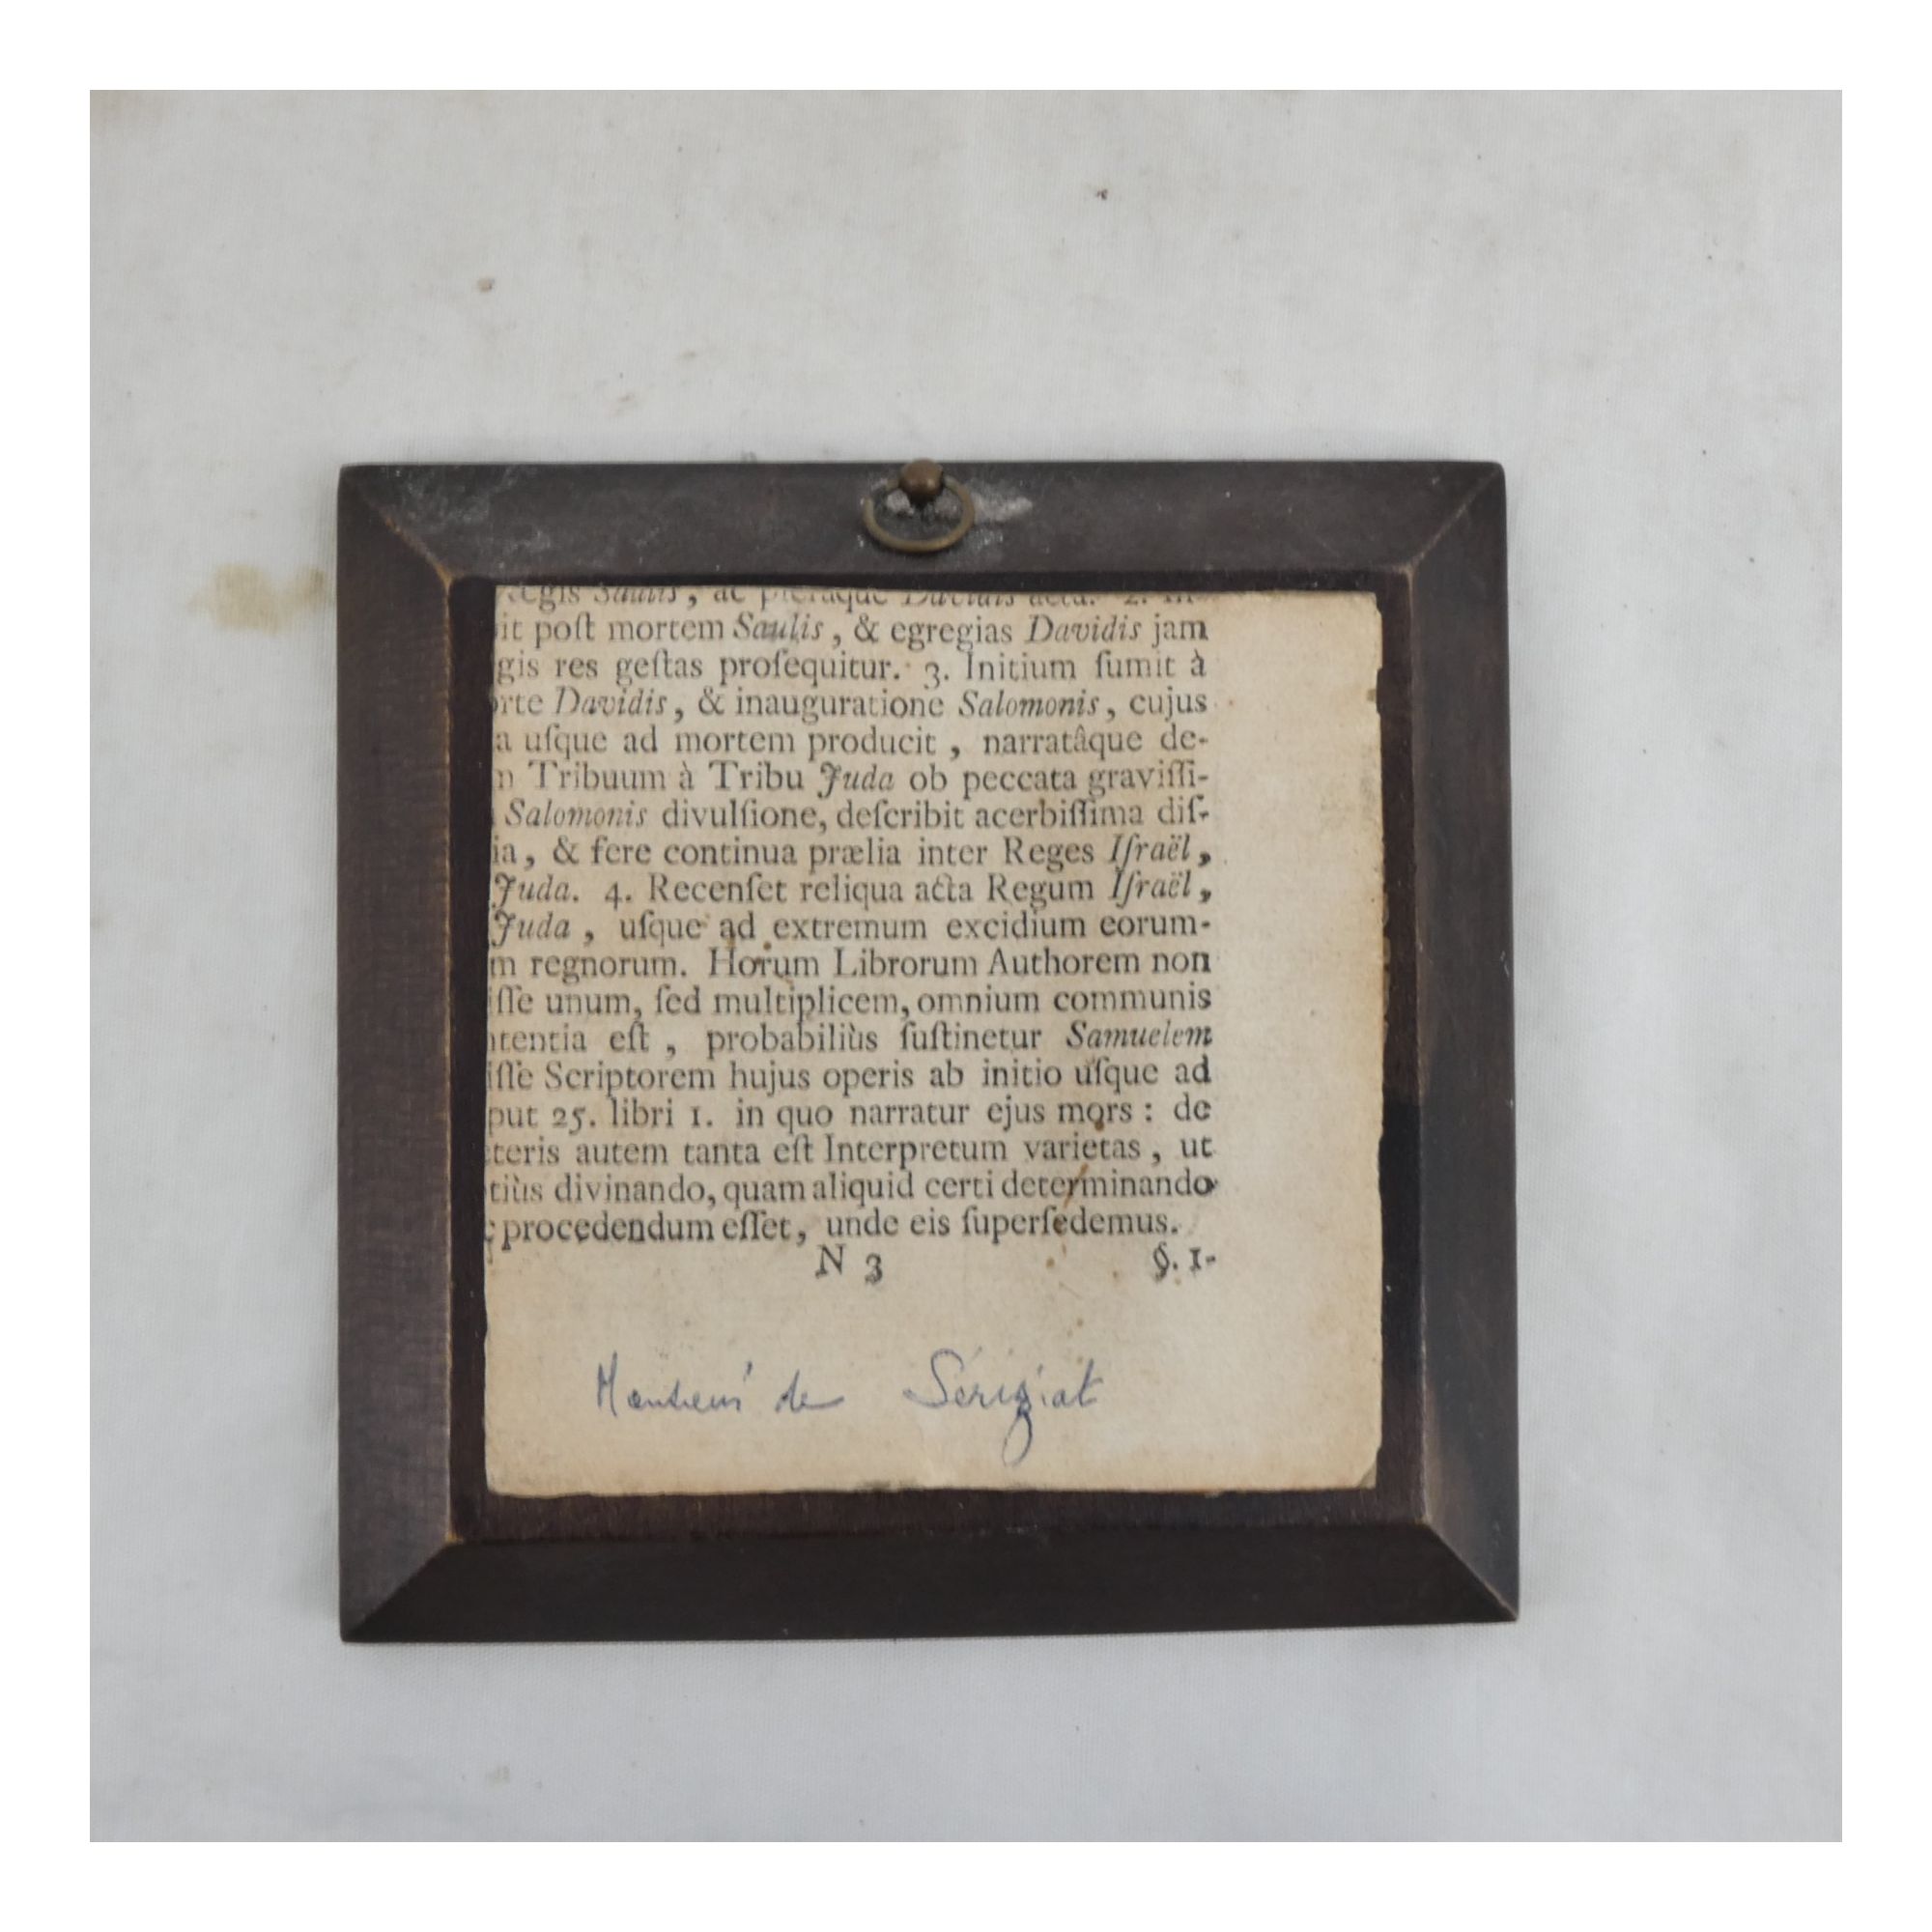 ægis Saulis, ac pleraque Davidis acta. 2. In-
it poſt mortem Saulis, & egregias Davidis jam
gis res geſtas proſequitur. 3. Initium ſumit à
orte Davidis, & inauguratione Salomonis, cujus
a uſque ad mortem producit, narratâque de-
m Tribuum à Tribu Juda ob peccata graviſſi-
Salomonis divulſione, deſcribit acerbiſſima diſ-
ia, & fere continua prælia inter Reges Iſraël,
Juda. 4. Recenſet reliqua acta Regum Iſraël,
Juda, uſque ad extremum excidium eorum-
m regnorum. Horum Librorum Authorem non
iſſe unum, ſed multiplicem, omnium communis
ntentia eſt, probabiliùs ſuſtinetur Samuelem
iſſe Scriptorem hujus operis ab initio uſque ad
put 25. libri 1. in quo narratur ejus mors: de
eteris autem tanta eſt Interpretum varietas, ut
tiùs divinando, quam aliquid certi determinando
c procedendum eſſet, unde eis ſuperſedemus.
N 3 §. 1-
Monsieur de Sériziat